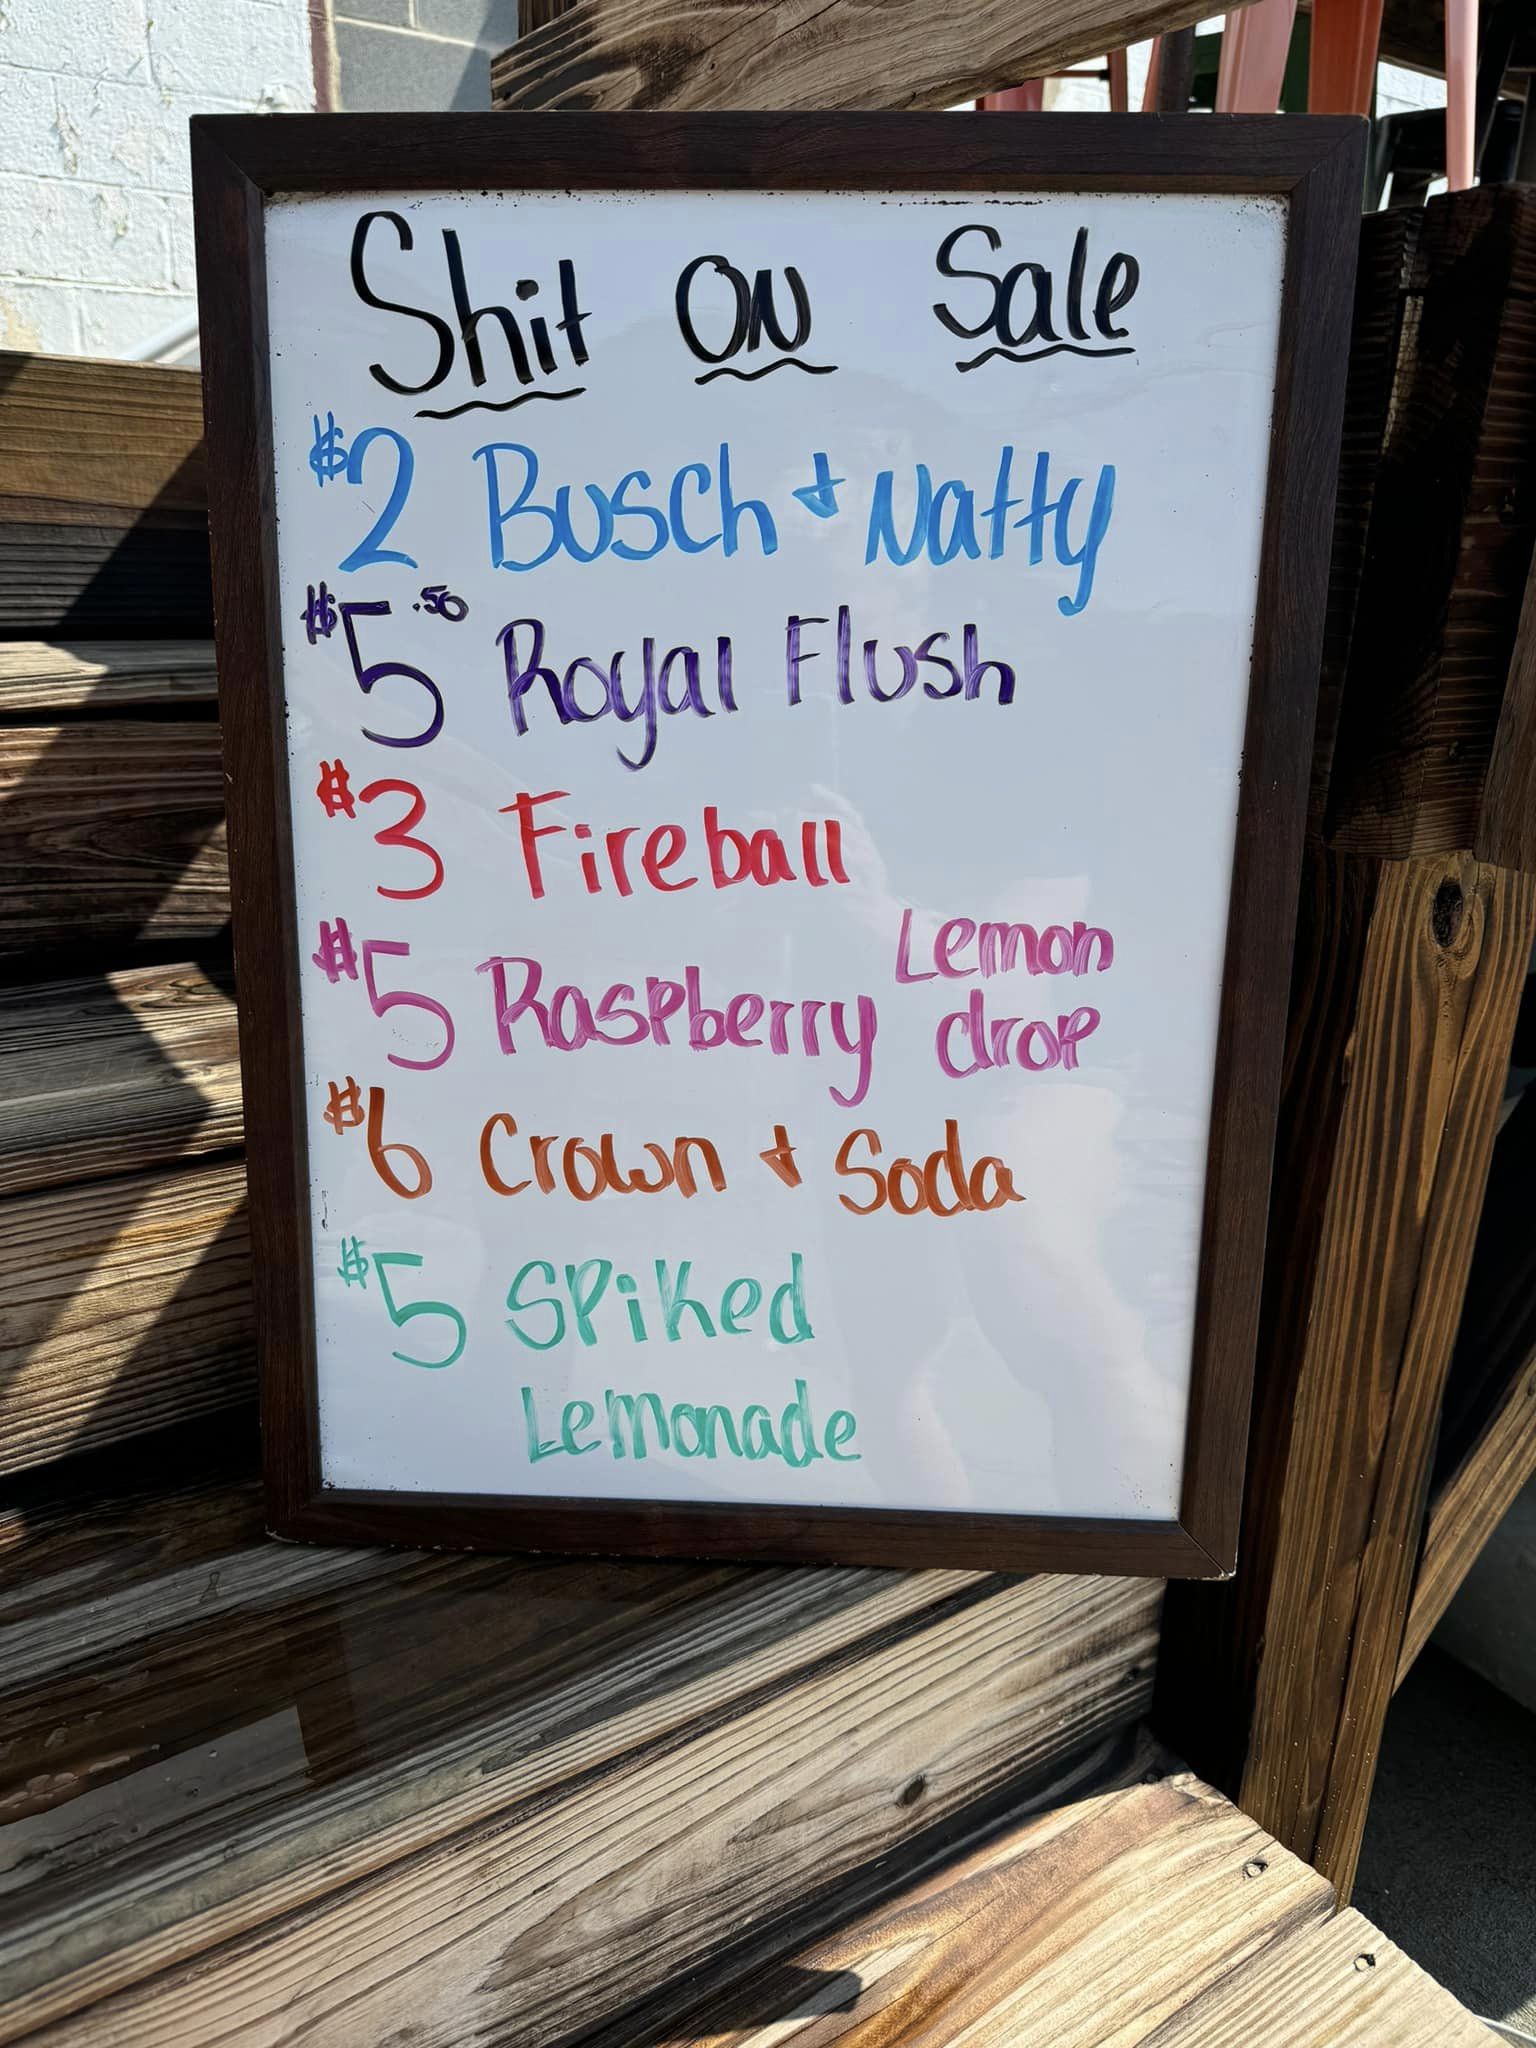 Shit ON Sale
$2 Busch & Natty
$5.50 Royal Flush
$3 Fireball
$5 Raspberry Lemon drop
$6 Crown & Soda
$5 Spiked
Lemonade